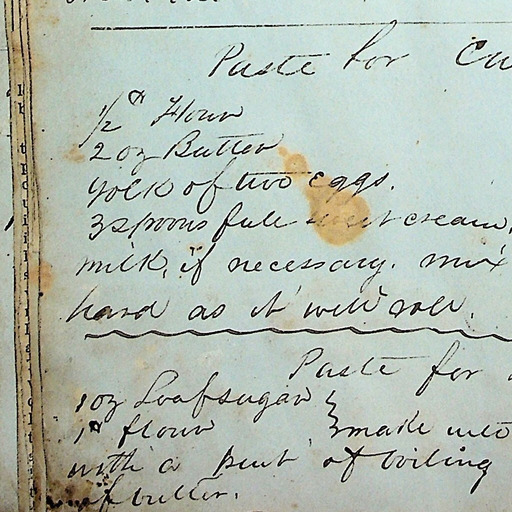 Paste for Cu
1/2 lb Flour
2 oz Butter
Yolk of two eggs.
3 spoons full sweet cream,
milk, if necessary. mix
hard as it will roll.
Paste for
1 oz Loaf sugar
1 lb flour } make into
with a pint of boiling
of butter.